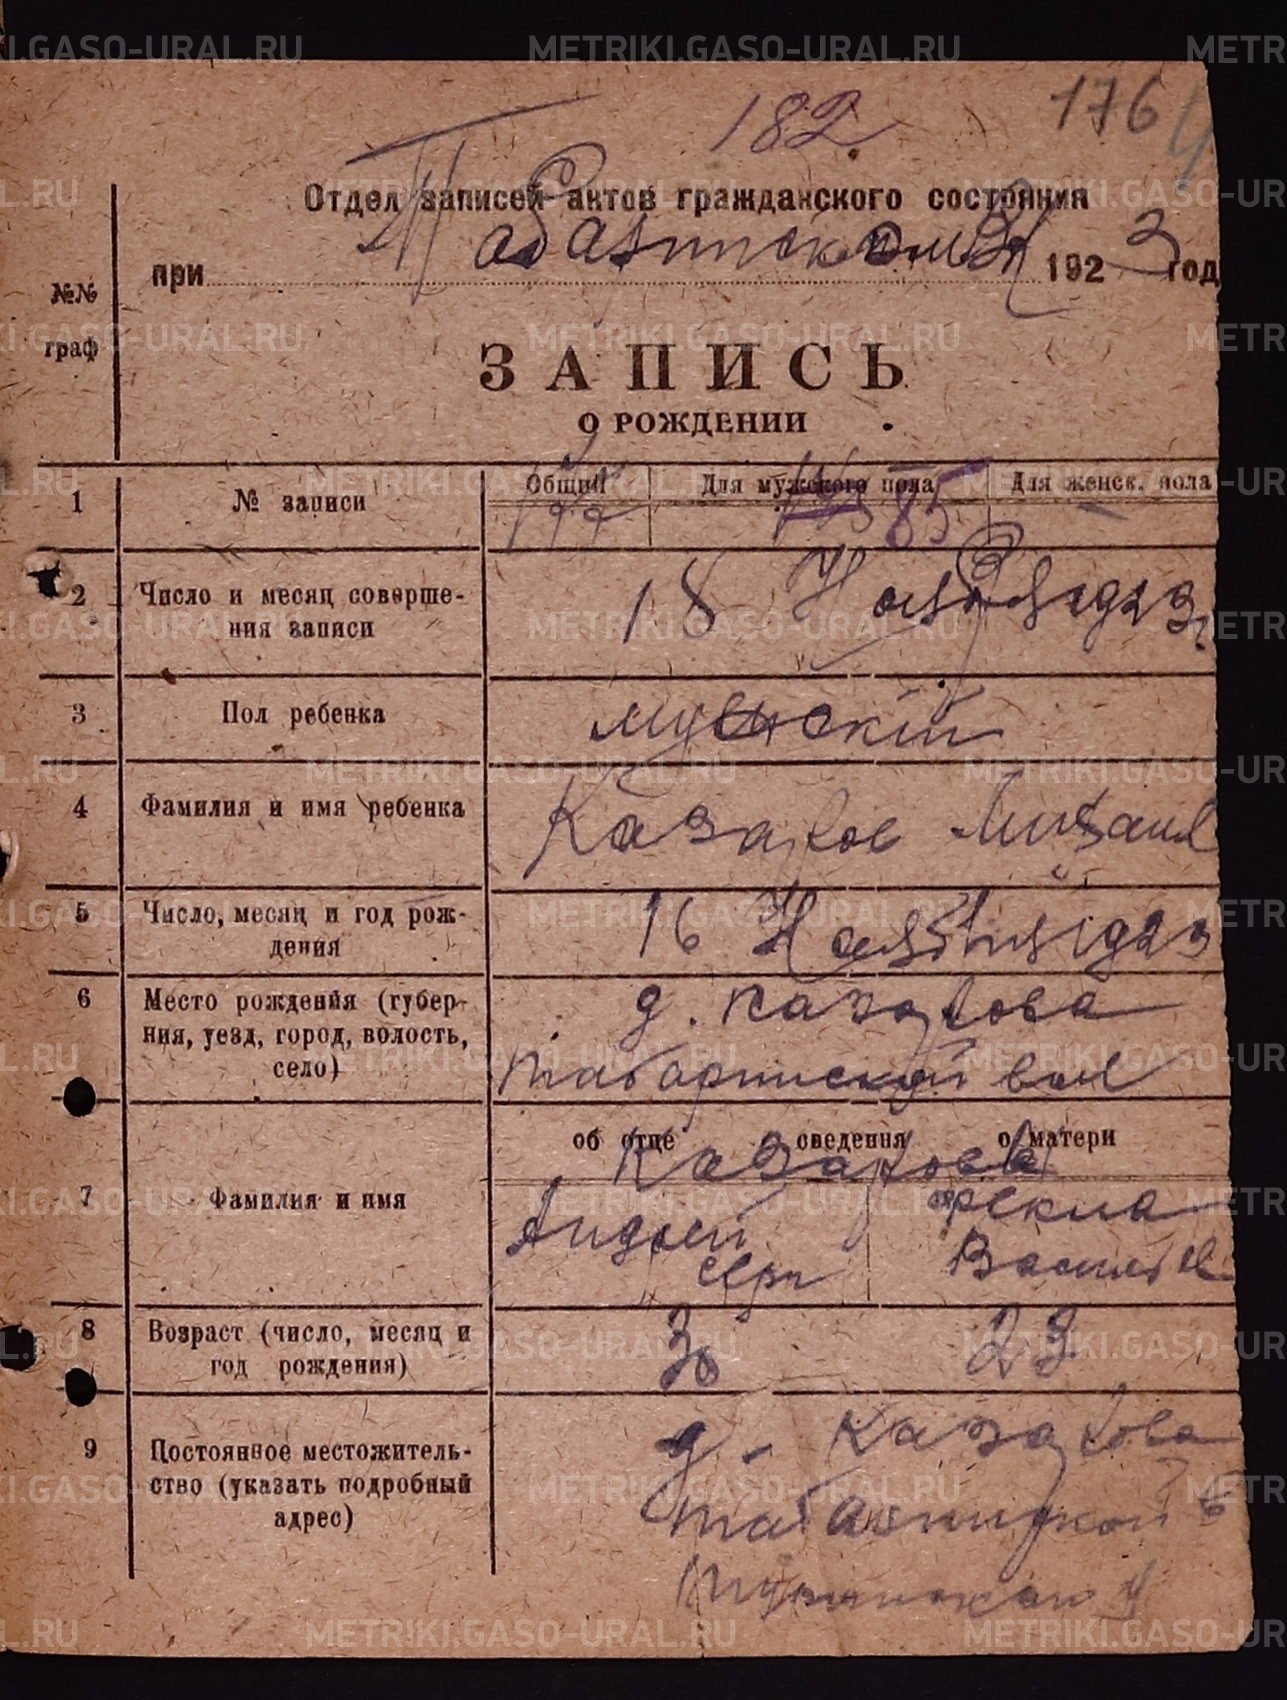 182
176
Отдел записей актов гражданского состояния
при Табаринском В 1923 год
№№
граф
ЗАПИСЬ
О РОЖДЕНИИ
1 № записи Общий Для мужского пола Для женск. пола
177 85 —
2 Число и месяц соверше-
ния записи
18 Ноября 1923 г
3 Пол ребенка мужской
4 Фамилия и имя ребенка Казаков Михаил
5 Число, месяц и год рож-
дения
16 Ноября 1923
6 Место рождения (губер-
ния, уезд, город, волость,
село)
д. Казакова
Табаринской вол
об отце сведения о матери
Казаковы
7 Фамилия и имя
Андрей Фекла
Васильев
8 Возраст (число, месяц и
год рождения)
30 29
9 Постоянное местожитель-
ство (указать подробный
адрес)
д. Казакова
Табаринской в
Туринского у
METRIKI.GASO-URAL.RU